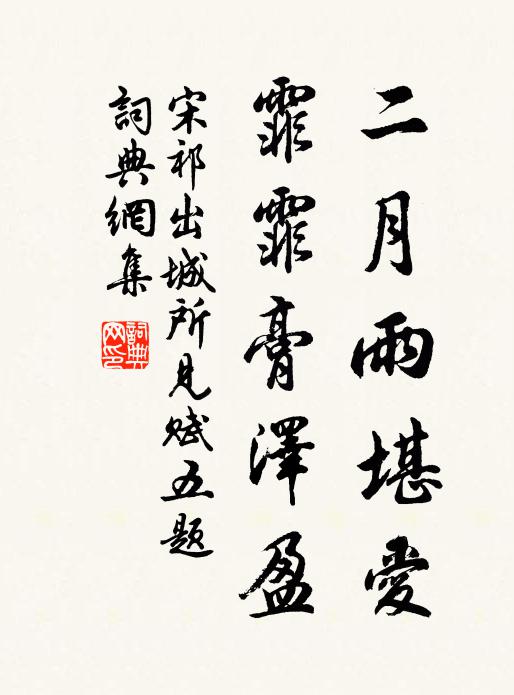 二月雨堪愛
霏霏膏澤盈
宋祁出城所見賦五題
詞典網集
詞典网印